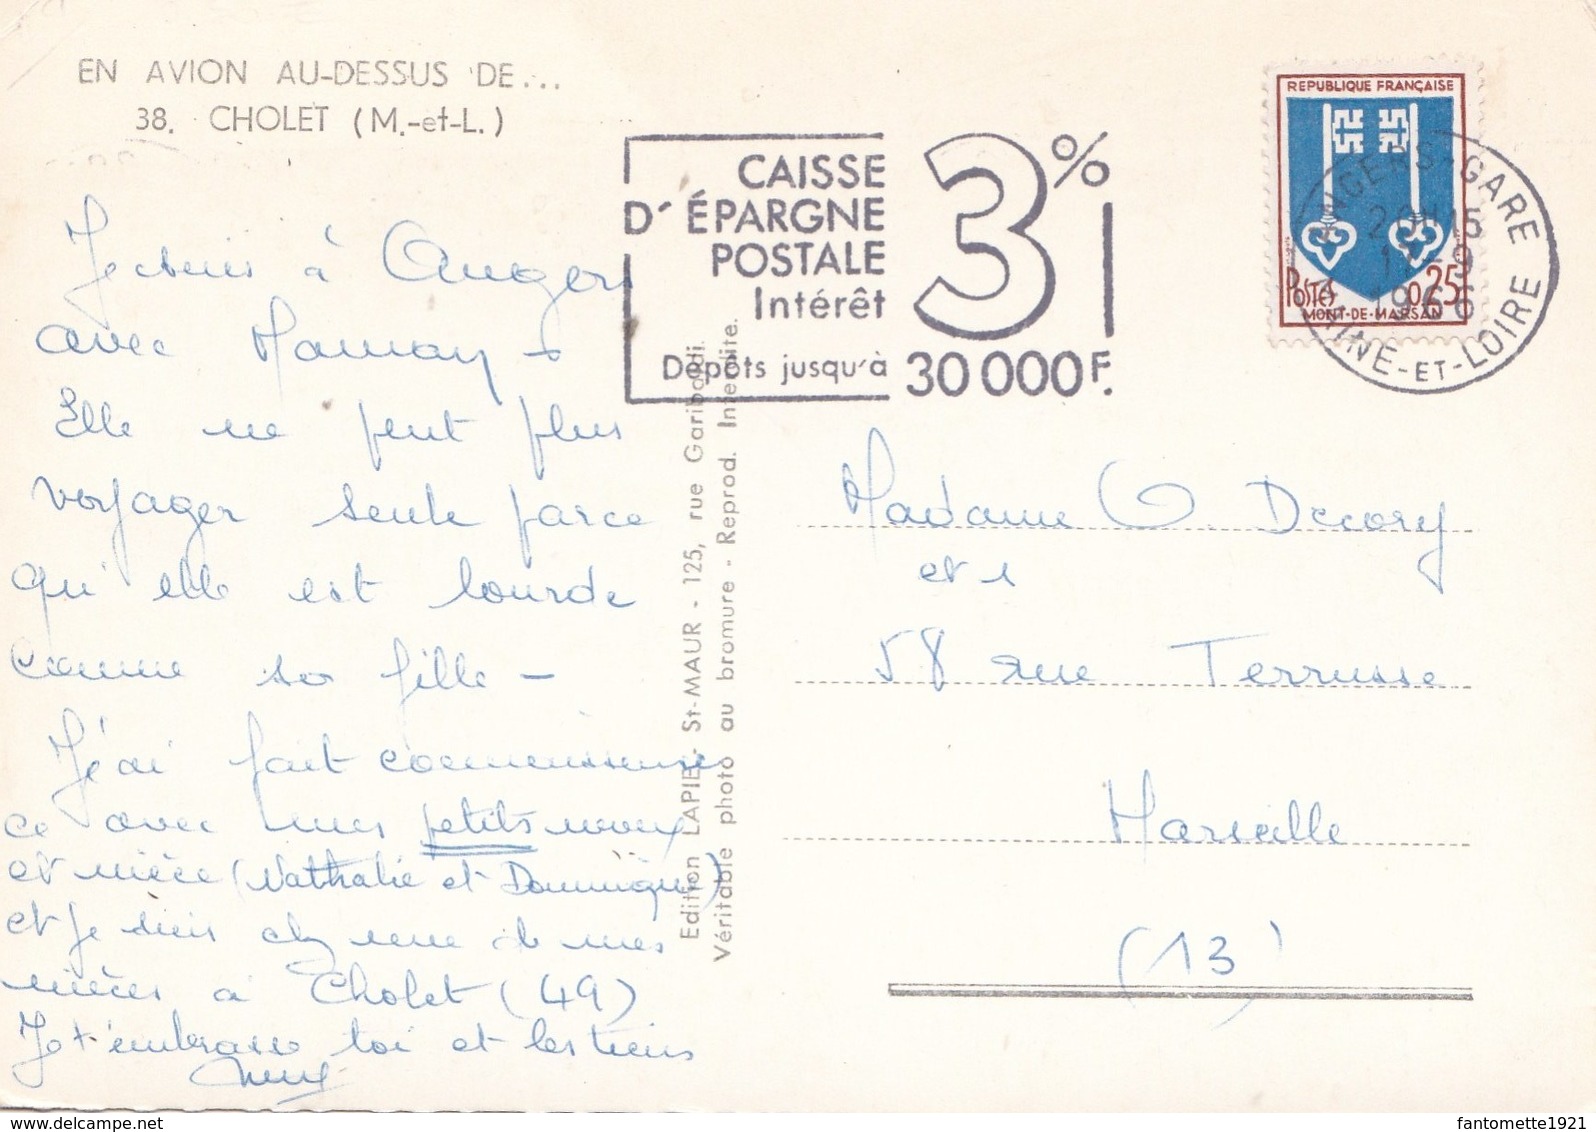 EN AVION AU-DESSUS DE...
38. CHOLET (M.-et-L.)
CAISSE
D'ÉPARGNE
POSTALE
Intérêt
3%
Dépôts jusqu'à 30 000 F.
REPUBLIQUE FRANÇAISE
POSTES 0,25
MONT-DE-MARSAN
ANGERS-GARE
1966
MAINE-ET-LOIRE
Je suis à Angers
avec Maman
Elle ne peut plus
voyager seule parce
qu'elle est lourde
comme sa fille -
J'ai fait connaissan
ce avec mes petits neveux
et nièce (Nathalie et Dominique)
et je suis chez une de mes
nièces à Cholet (49)
Je t'embrasse toi et les tiens
Edition LAPIE - St-MAUR - 125, rue Garibaldi.
Véritable photo au bromure - Reprod. Interdite.
Madame O. Decory
58 rue Terrusse
Marseille
(13)
fantomette1921